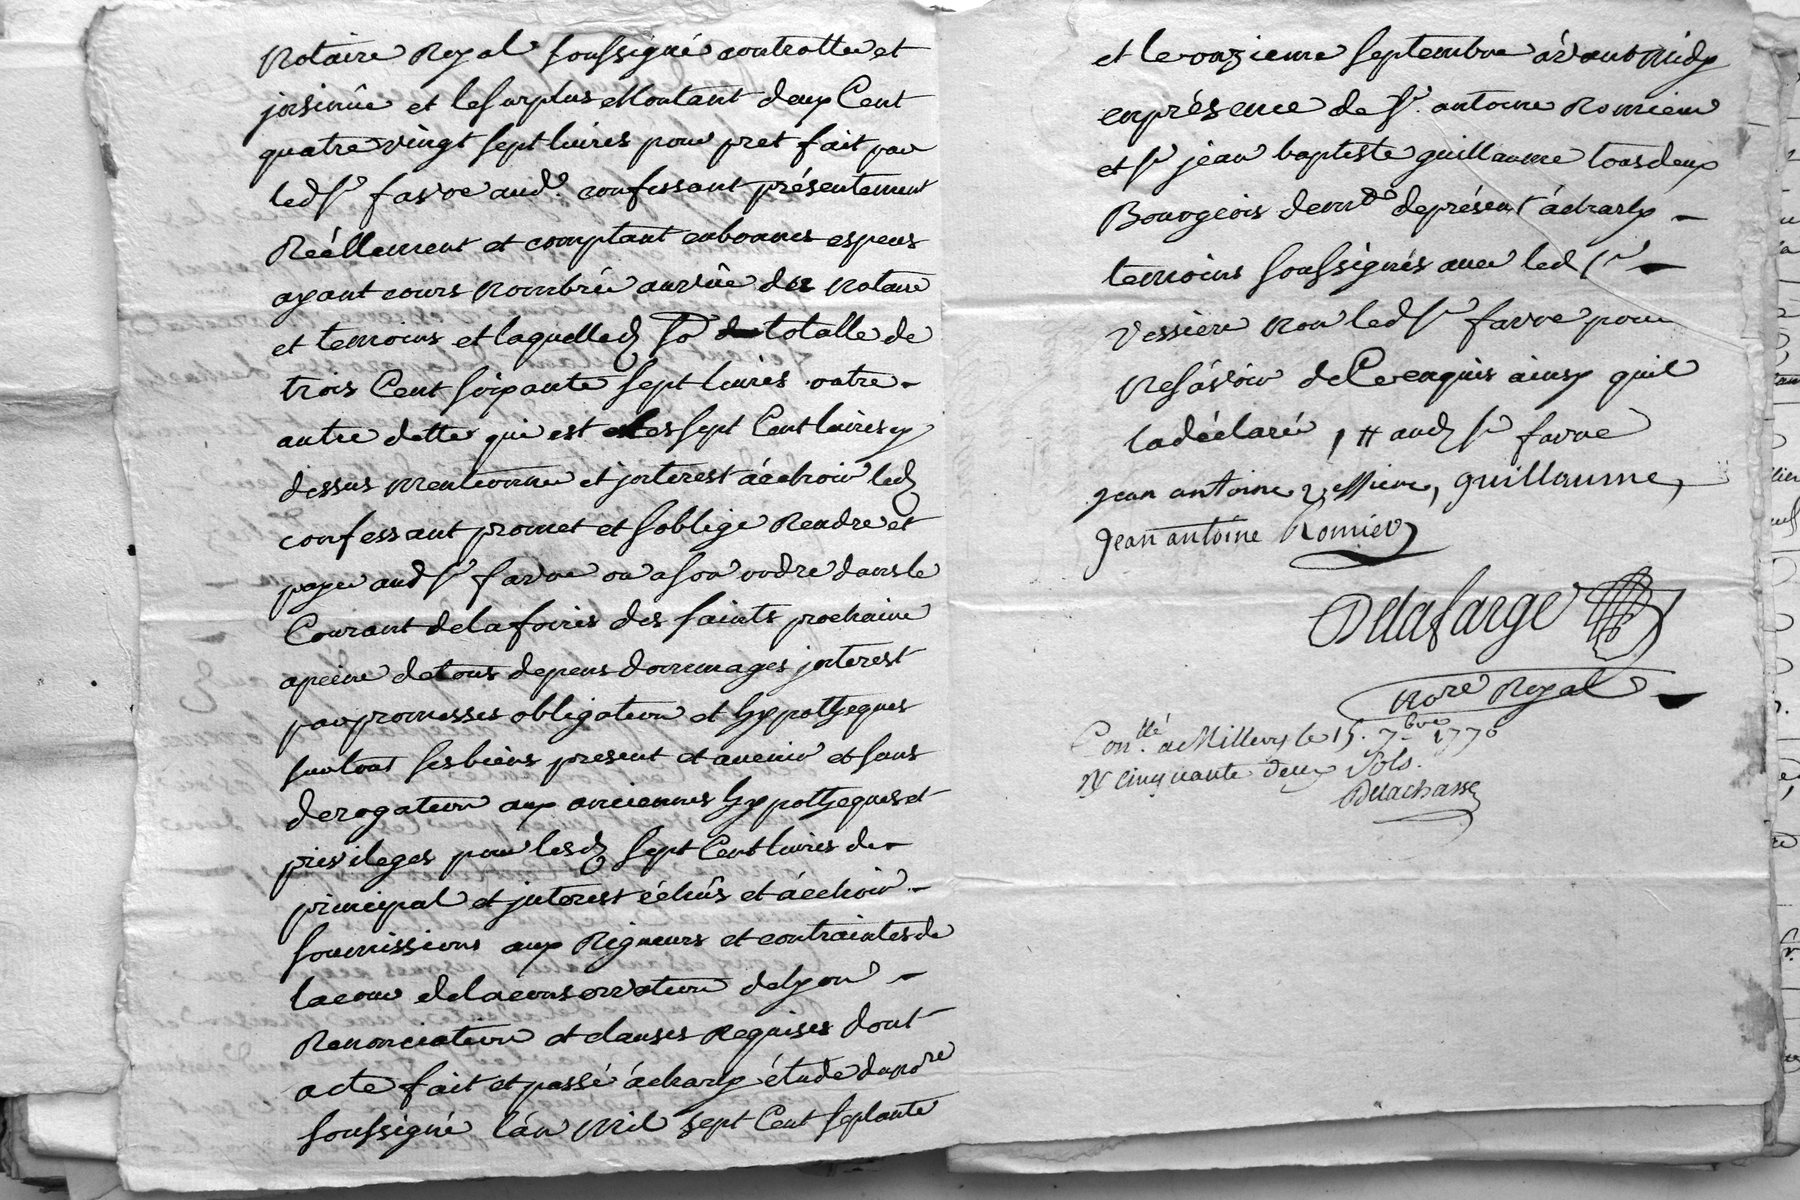 Notaire Royal soussigné controllé et
jnsinüé et le surplus Montant deux Cent
quatre vingt sept livres pour pret fait par
led Sr favre aud. confessant présentement
Réèllement et comptant en bonnes espens
ayant cours Nombrée au vüe des Notaire
et temoins et laquelled So totalle de
trois Cent soixante sept livres outre
autre dette qui est les sept Cent livres cy
dessus mentionné et jnterest àéchoir led
confessant promet et soblige Rendre et
payer aud Sr favre ou a son ordre dans le
Courant de la foires des saints prochaine
apeine de tous depens dommages jnterest
par promesses obligation et hypotheques
sur tous ses biens present et avenir et sans
derogation aux anciennes hypotheques et
privileges pour lesd sept Cent livres de
principal et jnterest échûs et àéchoir
soumissions aux Rigueurs et contraintes de
la cour de la conservation de lyon
Renonciation et clauses Requises dont
acte fait et passé à charly étude du nore
soussigné l'àn Mil sept Cent septante
et le onzieme septembre àvant Midy
en présence de Sr. antoine Romieu
et Sr jean baptiste guillaume tous deux
Bourgeois de présent à charly
temoins soussignés avec led Sr
Vessiere Non led Sr favre pour
Ne sàvoir de Ce enquis ainsy quil
la déclaré, # aud Sr favre
jean antoine vessiere, guillaume,
Jean antoine Romieu
Delafarge
Nore Royal
Contlé. a Millery le 15. 7bre 1770
R cinquante deux sols.
Delachasse